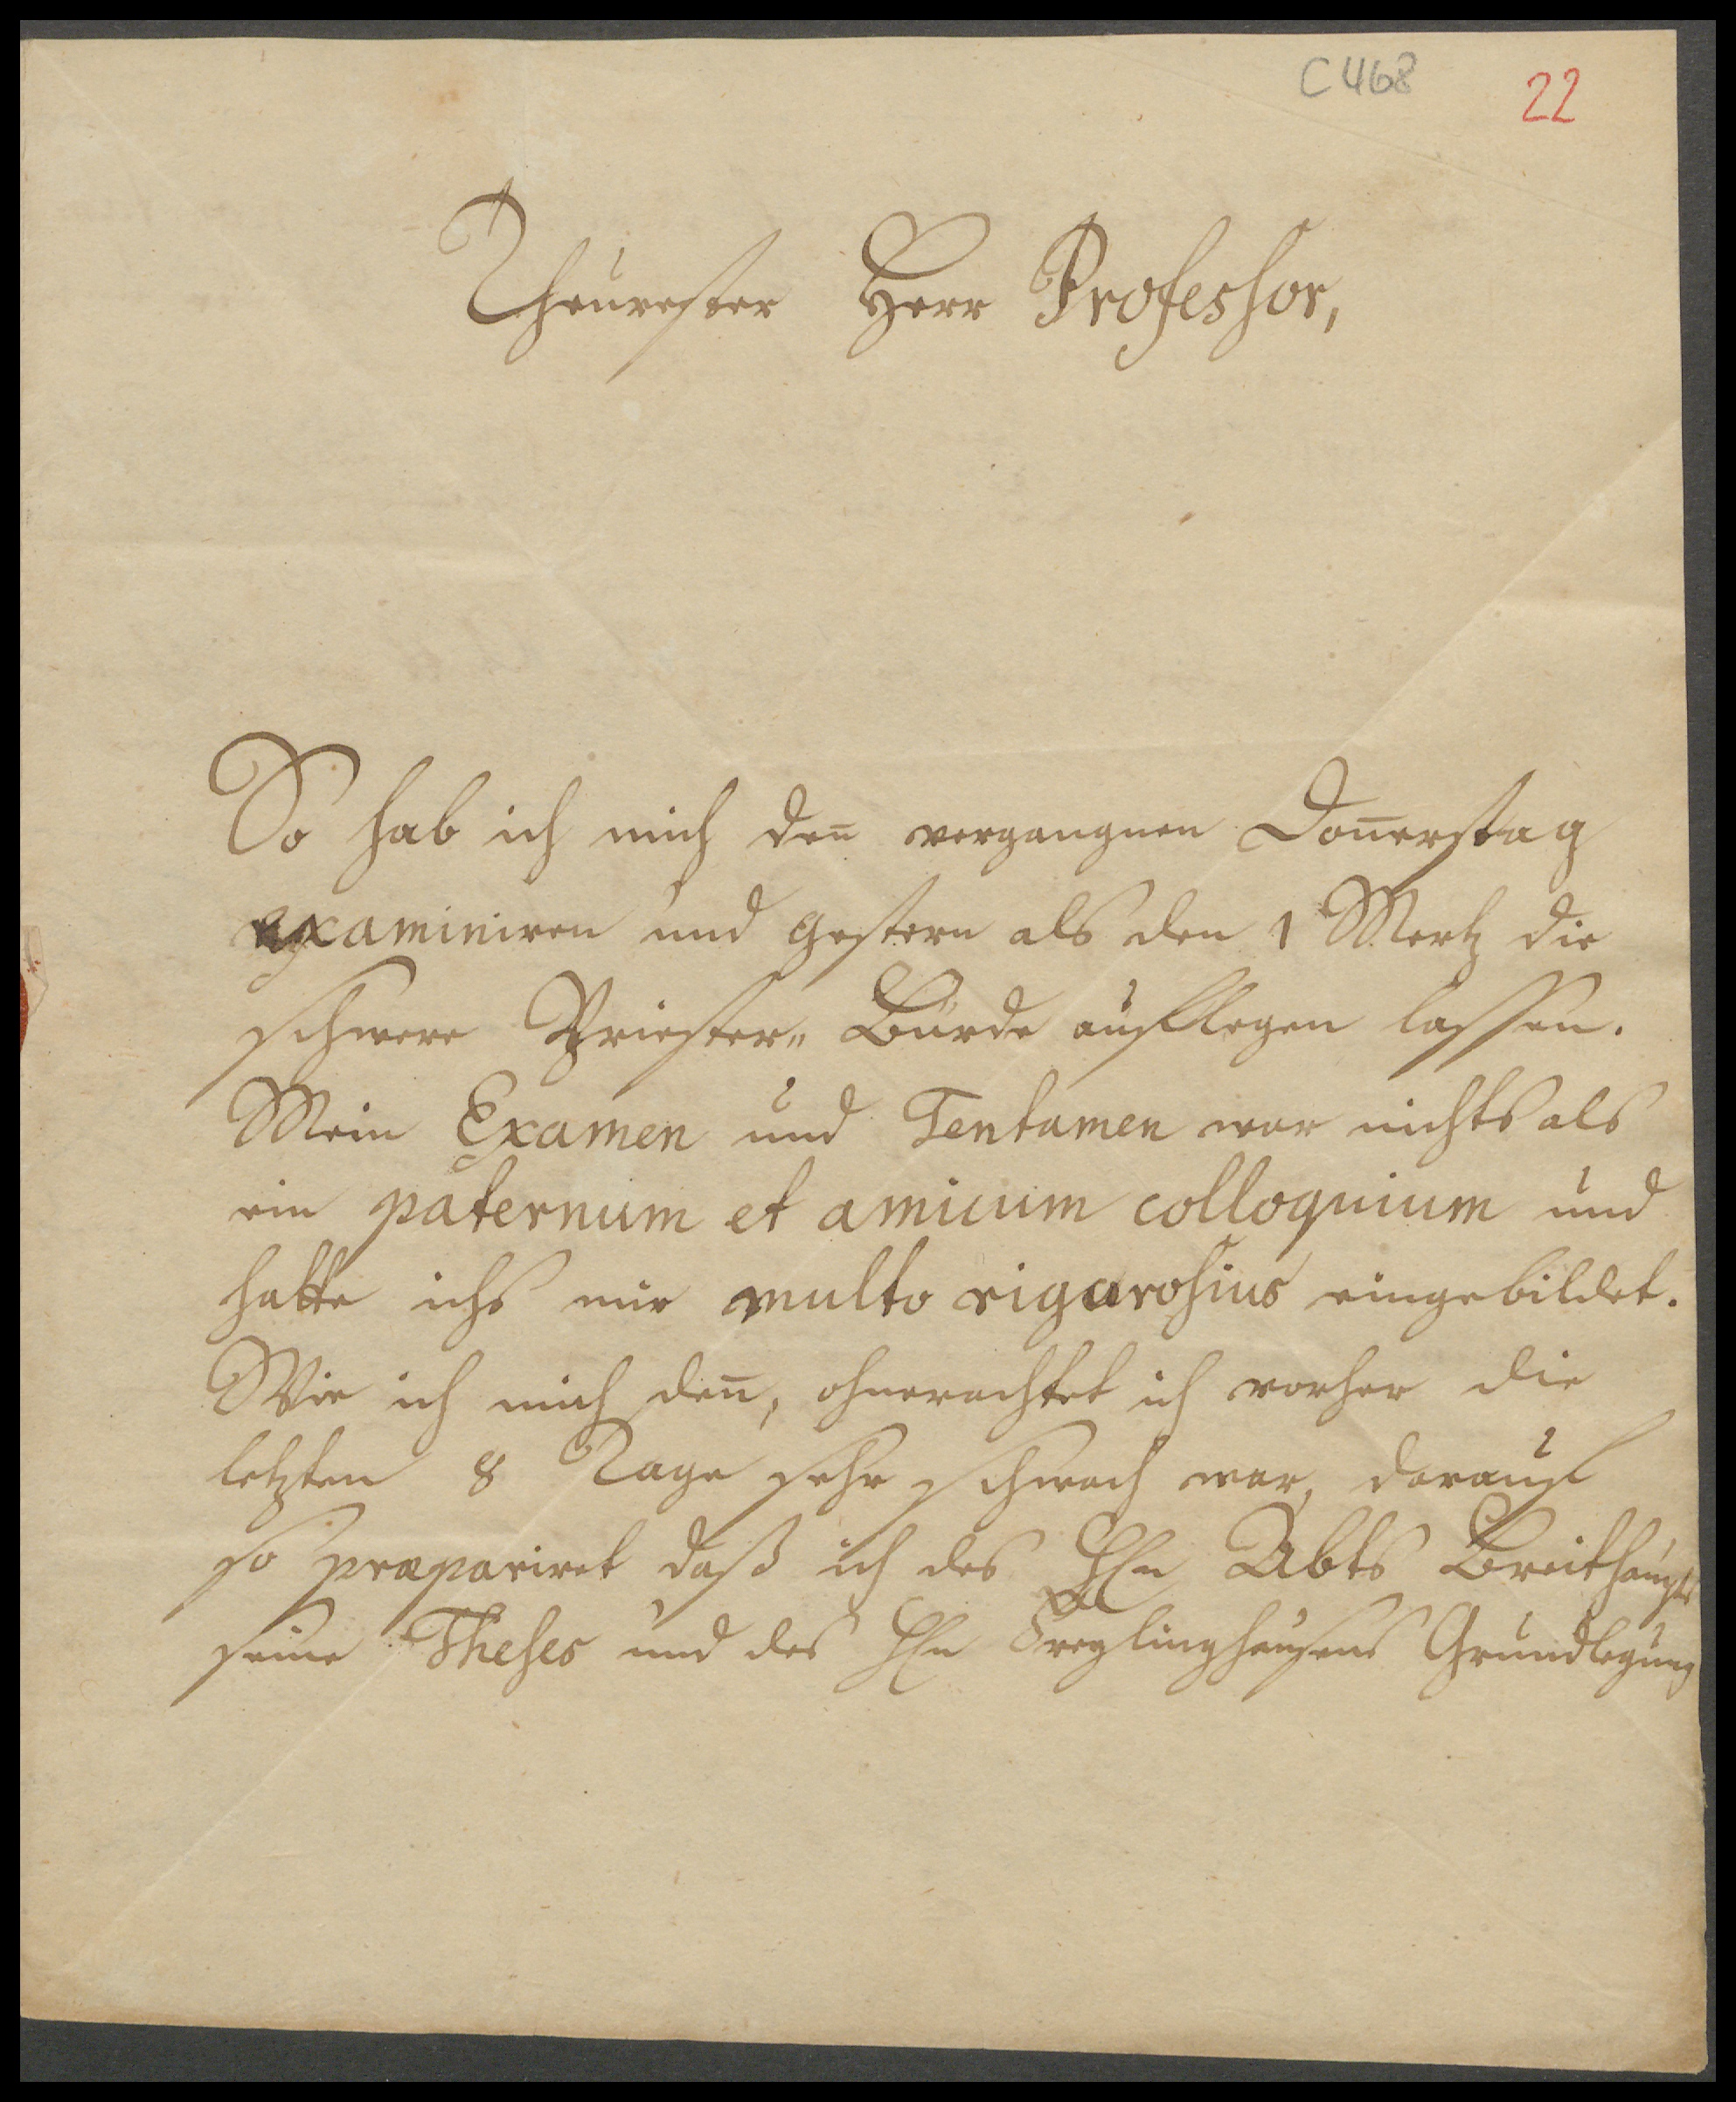 C 468 22
Theurester Herr Professor,
So hab ich mich den̅ vergangnen Don̅erstag
examiniren und gestern als den 1 Mertz die
schwere Priester„ Bürde aufflegen lassen.
Mein Examen und Tentamen war nichts als
ein paternum et amicum colloquium und
hatte ichs mir multo rigorosius eingebildet.
Wie ich mich den̅, ohnerachtet ich vorher die
letzten 8 Tage sehr schwach war, darauf
so præpariret daß ich des HEn Abts Breithaupts
seine Theses und des HEn Freylinghausens Grundlegung